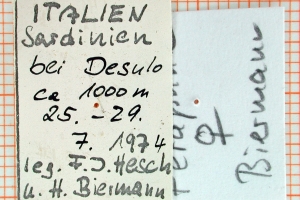 ITALIEN
Sardinien
bei Desulo
ca 1000 m
25. - 29.
7. 1974
leg. F. J. Hesch
u. H. Biermann
♀
Biermann